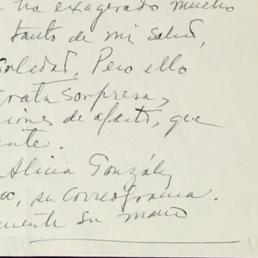 ha exagerado mucho
tanto de mi salud,
soledad. Pero ello
grata sorpresa,
ciones de afecto, que
ente.
Alicia González
su
mente su mano